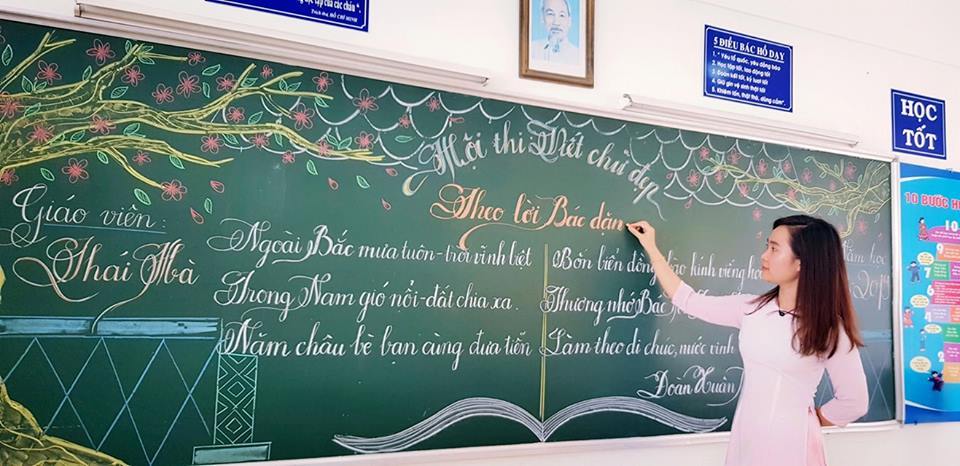 học tập của các cháu".
Trích thư, HỒ CHÍ MINH
5 ĐIỀU BÁC HỒ DẠY
1. Yêu tổ quốc, yêu đồng bào
2. Học tập tốt, lao động tốt
3. Đoàn kết tốt, kỷ luật tốt
4. Giữ gìn vệ sinh thật tốt
5. Khiêm tốn, thật thà, dũng cảm".
HỌC
TỐT
10 BƯỚC
Hội thi Viết chữ đẹp
Theo lời Bác dặn
Giáo viên:
Thái Hà
Năm học
Ngoài Bắc mưa tuôn - trời vĩnh biệt
Trong Nam gió nổi - đất chia xa.
Năm châu bè bạn cùng đưa tiễn
Bốn biển đồng bào kính viếng
Thương nhớ Bác
Làm theo di chúc, nước vinh
Đoàn Xuân